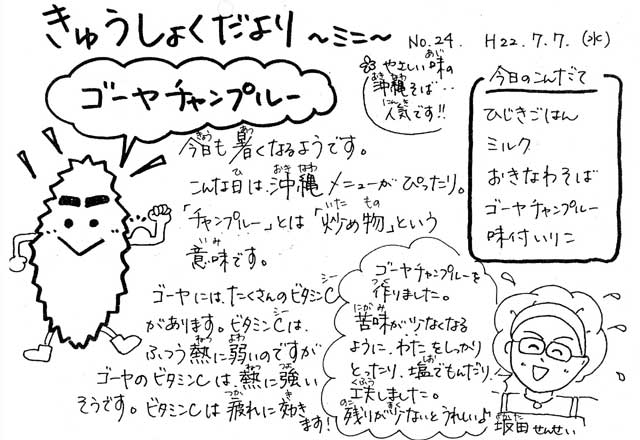 きゅうしょくだより ～ミニ～
No.24. H22.7.7.(水)
ゴーヤチャンプルー
やさしい味の
沖縄そば‥
人気です!!
今日のこんだて
ひじきごはん
ミルク
おきなわそば
ゴーヤチャンプルー
味付いりこ
今日も暑くなるようです。
こんな日は、沖縄メニューがぴったり。
「チャンプルー」とは「炒め物」という
意味です。
ゴーヤには、たくさんのビタミンC
があります。ビタミンCは、
ふつう熱に弱いのですが
ゴーヤのビタミンCは、熱に強い
そうです。ビタミンCは疲れに効き
ます!
ゴーヤチャンプルーを
作りました。
苦味が少なくなる
ように、わたをしっかり
とったり、塩でもんだり、
工夫しました。
残りが少ないとうれしい♪
坂田せんせい